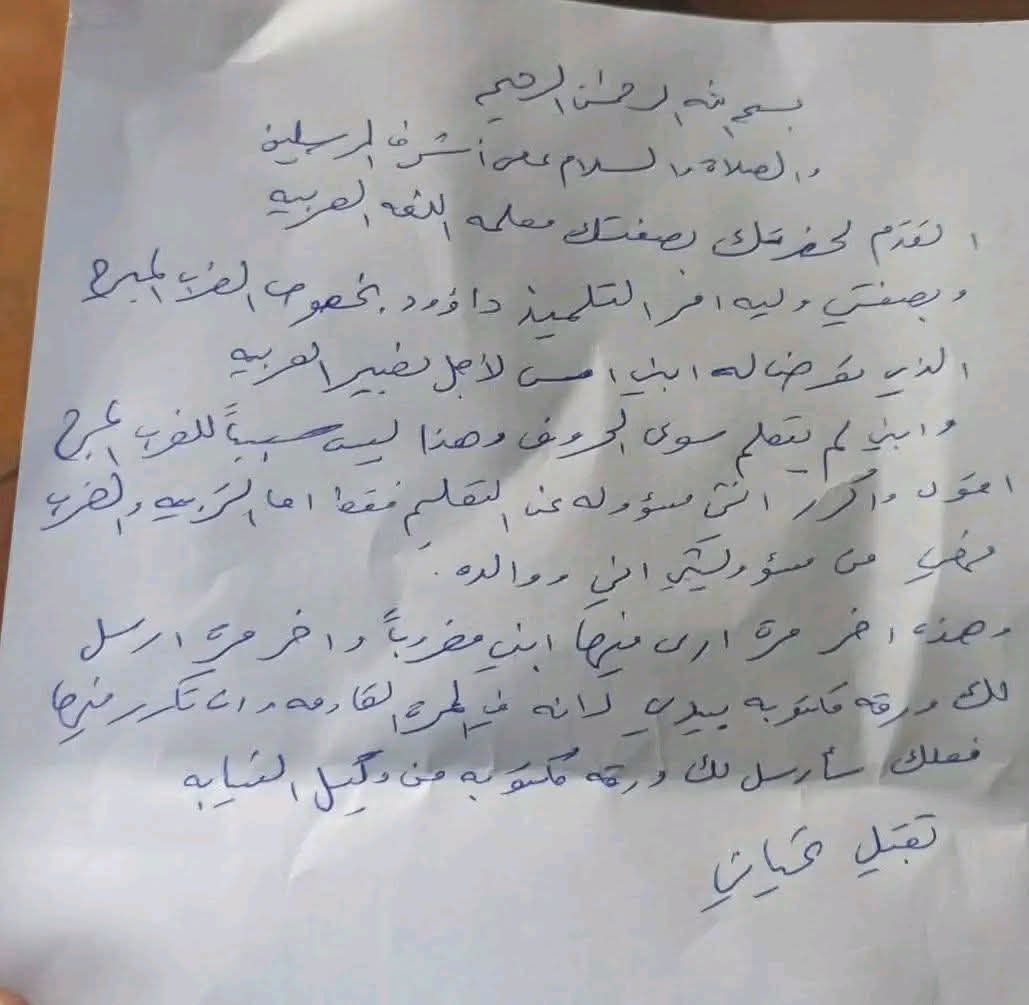 بسم الله الرحمن الرحيم
والصلاة والسلام على أشرف المرسلين
اتقدم لحضرتك بصفتك معلمه اللغه العربيه
وبصفتي وليه امر التلميذ داؤود بخصوص الضرب المبرح
الذي تعرض له ابني امس لأجل تعبير العربيه
وابني لم يتعلم سوى الحروف وهذا ليس سبباً للضرب المبرح
اقول واكرر انتي مسؤوله عن التعليم فقط اما التربيه والضرب
فهي من مسؤوليتي اني ووالده.
وهذه اخر مرة ارى فيها ابني مضروباً واخر مرة ارسل
لك ورقه مكتوبه بيدي لانه في المرة القادمه وان تكرر فيها
فعلك سأرسل لك ورقه مكتوبه من وكيل النيابه
تقبلي تحياتي